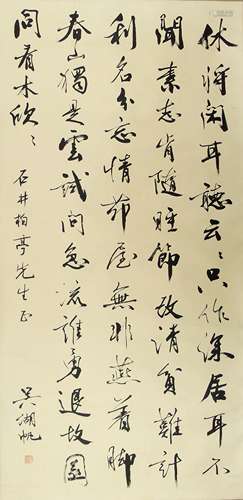 休將閑耳聽云〻只作深居耳不
聞素志肯隨時節改清貧難計
利名分忘情茆屋無非燕着脚
春山獨是雲試問急流誰勇退故園
同看木欣〻
石井柏亭先生正
吳湖帆